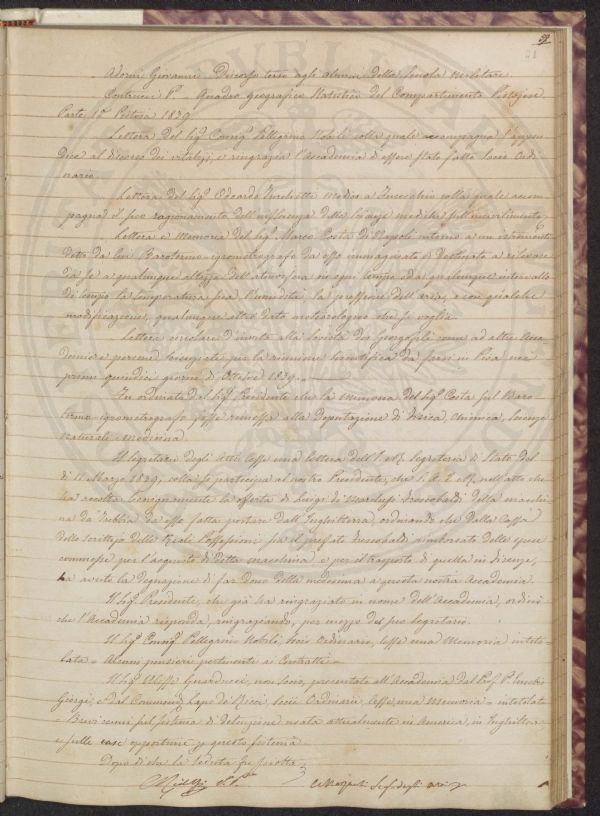 59
Adorni Giovanni - Discorso terzo agli alunni della Scuola Militare.
Contrucci P. - Quadro geografico Statistico del Compartimento Pistojese
Parte 1ª Pistoia 1839.
Lettera del Sigʳ Consigʳ Pellegrino Nobili colla quale accompagna l'appen-
dice al discorso dei vitalizj, e ringrazia l'Accademia di essere stato fatto socio ordi-
nario.
Lettera del Sigʳ Odoardo Turchetti medico a Fucecchio colla quale accom-
pagna il suo ragionamento dell'influenza delle scienze mediche sull'incivilimento.
Lettera e Memoria del Sigʳ Marco Costa di Napoli intorno a un istrumento
detto da lui Barotermo-igrometrografo da esso immaginato e destinato a rilevare
da se a qualunque altezza dell'atmosfera in ogni tempo ed a qualunque intervallo
di tempo la temperatura sia l'umidità la pressione dell'aria, e con qualche
modificazione, qualunque altro dato meteorologico che si voglia.
Lettera circolare d'invito alla Società dei Georgofili come ad altre Acca-
demie e persone per la riunione scientifica da farsi in Pisa nei
primi quindici giorni di Ottobre 1839.
Fu ordinato dal Sigʳ Presidente che la memoria del Sigʳ Costa sul Baro-
termo-igrometrografo fosse rimessa alla Deputazione di Fisica, Chimica, Scienze
naturali e Medicina.
Il Segretario degli Atti lesse una lettera dell'I. e R. Segreteria di Stato del
dì 11 Marzo 1839, colla si partecipa al nostro Presidente, che S. A. I. e R. nell'atto che
ha accolta benignamente la offerta di Luigi di Marchesi Frescobaldi della macchi-
na da Trebbia da esso fatta portare dall'Inghilterra, ordinando che dalla Cassa
dello scrittojo delle Reali Possessioni sia il prefato Frescobaldi rimborsato delle spese
commesse per l'acquisto di detta macchina e per il trasporto di quella in Firenze,
ha avuto la degnazione di far dono della medesima a questa nostra Accademia.
Il Sigʳ Presidente, che già ha ringraziato in nome dell'Accademia, ordinò
che l'Accademia risponda, ringraziando, per mezzo del suo segretario.
Il Sigʳ Consigʳ Pellegrino Nobili, socio Ordinario, lesse una Memoria intito-
lata = Alcuni pensieri pertinenti ai Contratti =
Il Sigʳ Ulisse Guarducci, non socio, presentato all'Accademia dal Prof. P.
Giorgi, e dal Commend. Lapo de' Ricci, socii Ordinarii, lesse una Memoria = intitolata
= Brevi cenni sul sistema di detenzione usata attualmente in America, in Inghilterra
e sulle case opportune p questo sistema.
Dopo di che la seduta fu sciolta.
CRidolfi
Segr. degli Atti